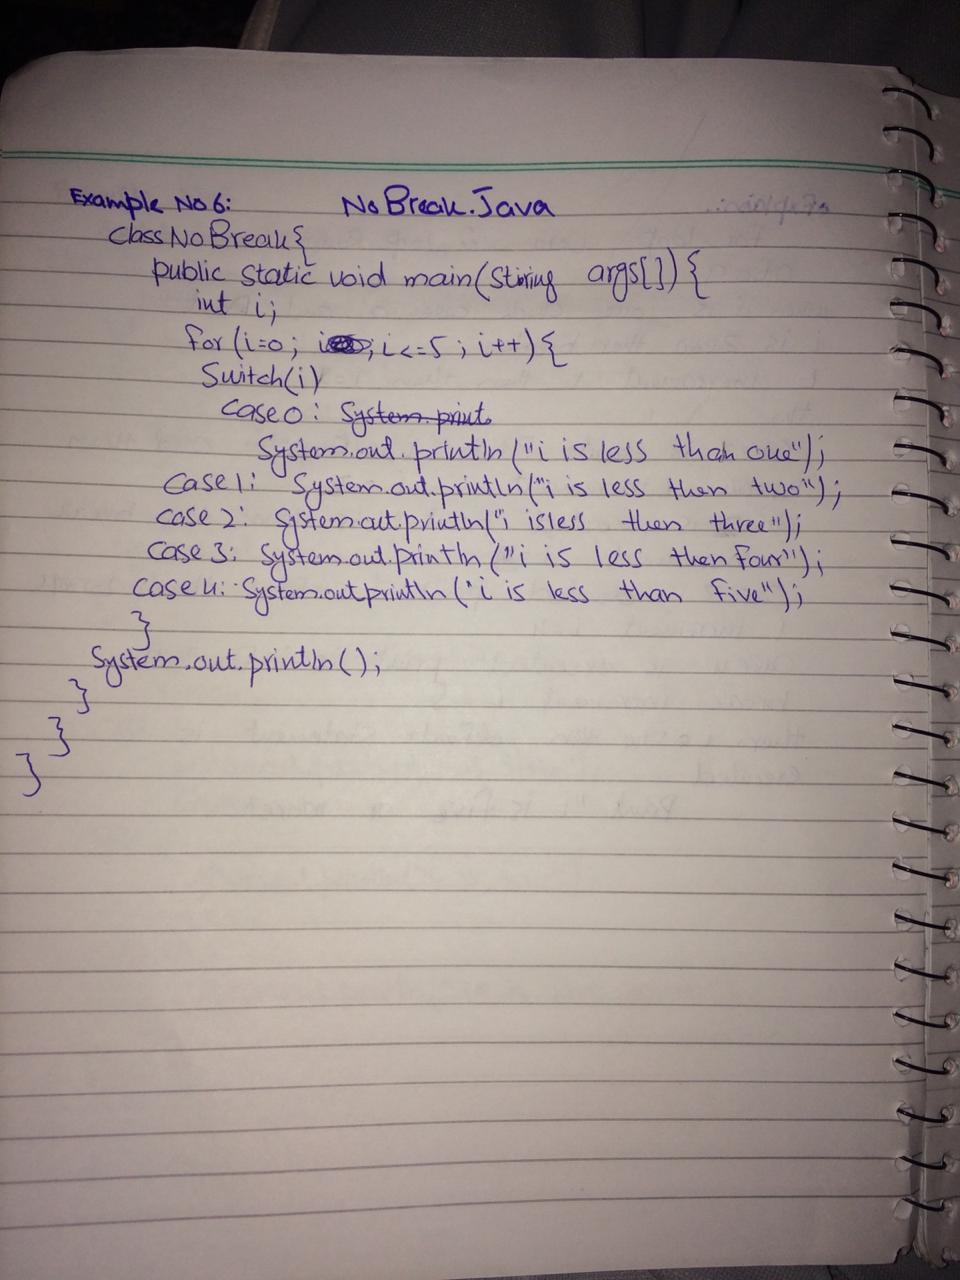 Example No 6: No Break.Java
class No Break{
public static void main(String args[]){
int i;
for (i=0; i<=5; i++){
Switch(i)
case 0: System.print
System.out.println("i is less than one");
case 1: System.out.println("i is less then two");
case 2: System.out.println("i is less then three");
case 3: System.out.println("i is less then four");
case 4: System.out println("i is less than five");
}
System.out.println();
}
}
}